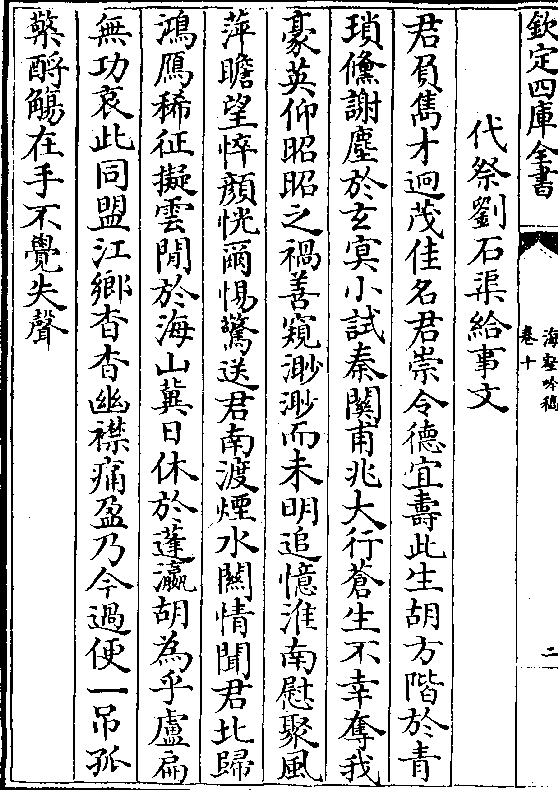 欽定四庫全書
海壑吟稿
卷十
二
代祭劉石渠給事文
君負雋才迥茂佳名君崇令德宜壽此生胡方階於青
瑣儵謝塵於玄冥小試秦關甫兆大行蒼生不幸奪我
豪英仰昭昭之禍善窺渺渺而未明追憶淮南慰聚風
萍瞻望悴顔恍爾惕驚送君南渡煙水關情聞君北歸
鴻鴈稀征擬雲閒於海山冀日休於蓬瀛胡為乎盧扁
無功哀此同盟江鄉杳杳幽襟痛盈乃今過便一吊孤
檠酹觴在手不覺失聲